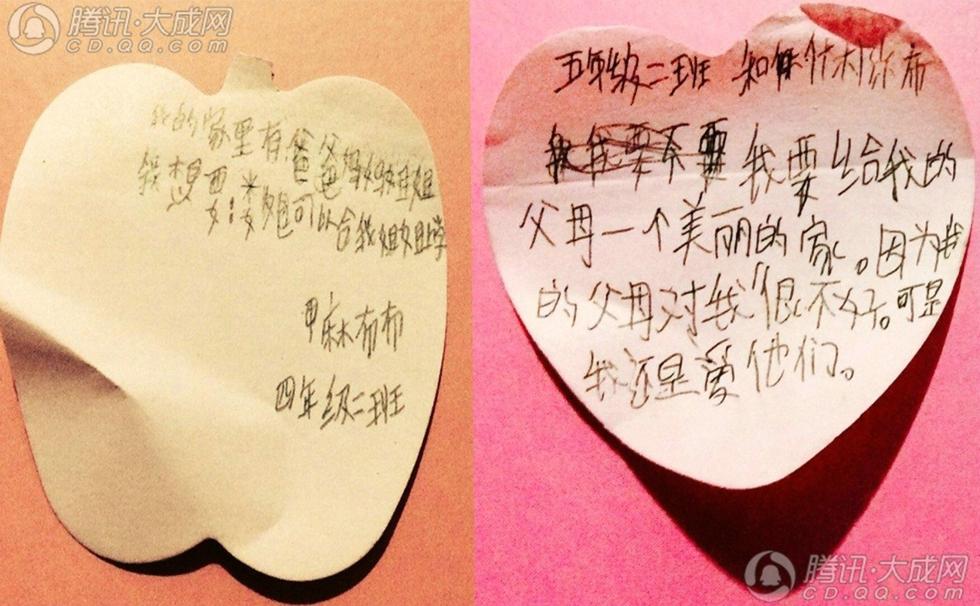 腾讯·大成网
CD.QQ.COM
我的家里有爸爸妈妈姐姐
我想要
可以给我姐姐上学
甲麻布布
四年级二班
五年级二班
我我要不要我要给我的
父母一个美丽的家。因为我
的父母对我很不好。可是
我还是爱他们。
腾讯·大成网
CD.QQ.COM